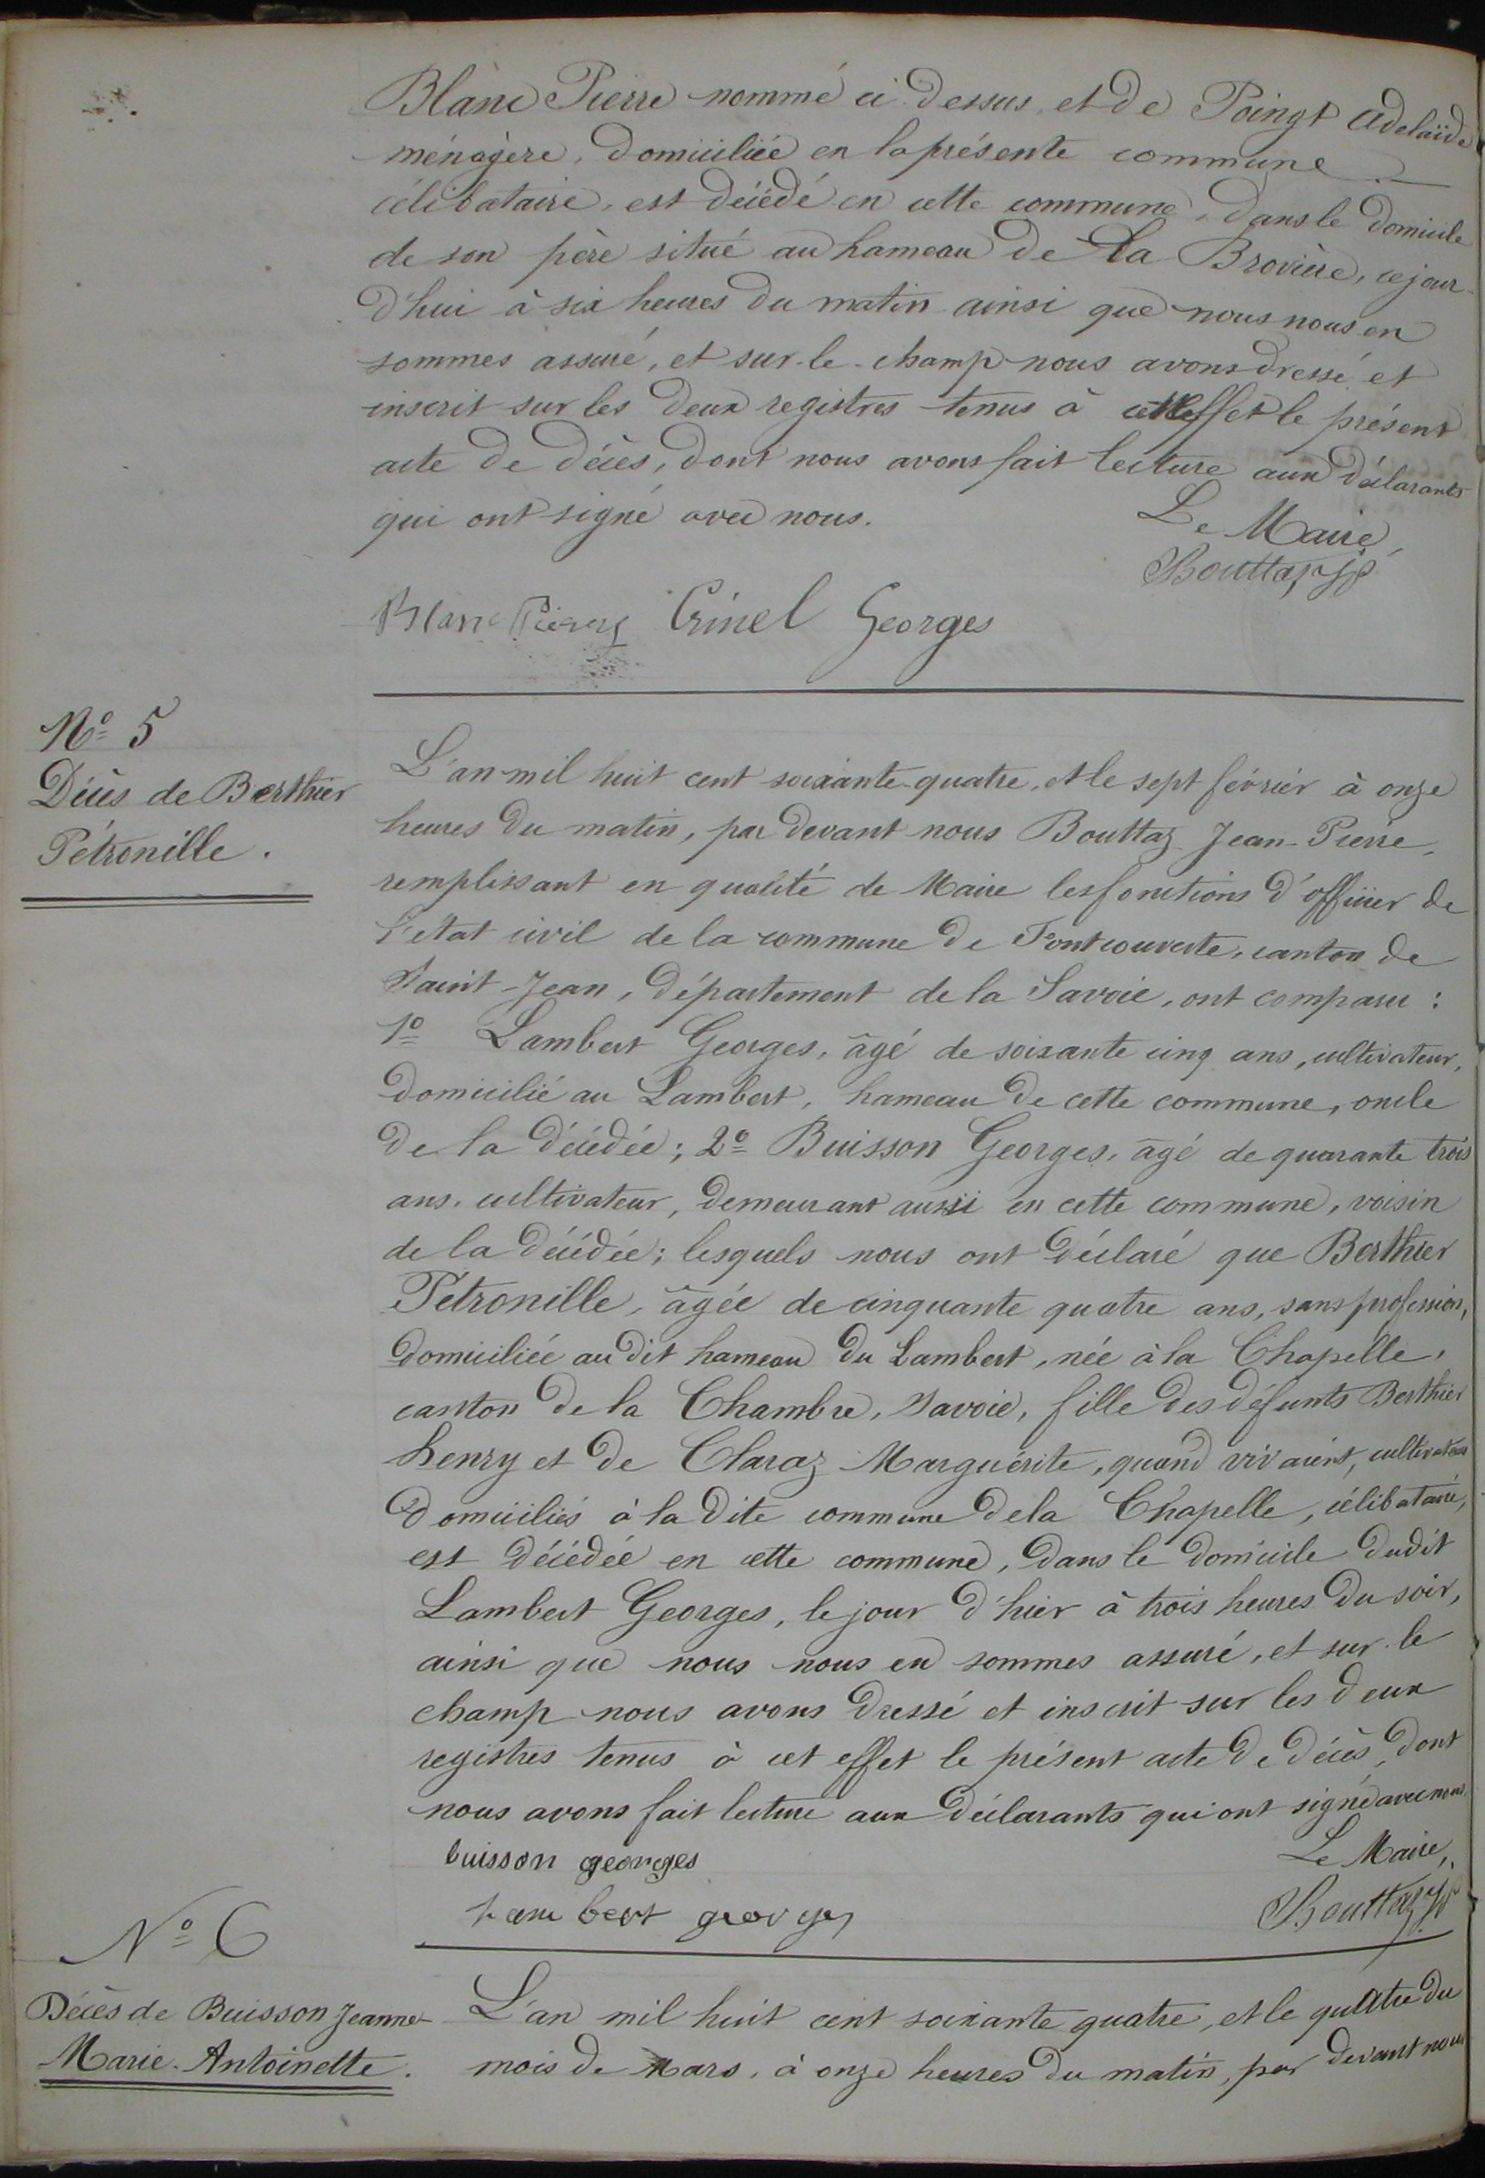 Blanc Pierre nommé ci-dessus, et de Poingt Adelaïde
ménagère, domiciliée en la présente commune
célibataire, est décédé en cette commune, dans le domicile
de son père situé au hameau de la Brovière, cejour-
d'hui à six heures du matin ainsi que nous nous en
sommes assuré, et sur-le-champ nous avons dressé et
inscrit sur les deux registres tenus à cet effet le présent
acte de décès, dont nous avons fait lecture aux déclarants
qui ont signé avec nous.
Le Maire,
Bouttaz JP
Blanc Pierre Crinel Georges
N° 5
Décès de Berthier
Pétronille.
L'an mil huit cent soixante-quatre, et le sept février à onze
heures du matin, par devant nous Bouttaz Jean-Pierre,
remplissant en qualité de Maire les fonctions d'officier de
l'etat civil de la commune de Fontcouverte, canton de
Saint-Jean, département de la Savoie, ont comparu :
1° Lambert Georges, âgé de soixante cinq ans, cultivateur,
domicilié au Lambert, hameau de cette commune, oncle
de la décédée; 2° Buisson Georges, âgé de quarante trois
ans, cultivateur, demeurant aussi en cette commune, voisin
de la décédée; lesquels nous ont déclaré que Berthier
Pétronille, âgée de cinquante quatre ans, sans profession,
domiciliée au dit hameau du Lambert, née à la Chapelle,
canton de la Chambre, Savoie, fille des défunts Berthier
henry et de Claraz Marguérite, quand vivaient, cultivateurs
domiciliés à la dite commune de la Chapelle, célibataire,
est décédée en cette commune, dans le domicile dudit
Lambert Georges, le jour d'hier à trois heures du soir,
ainsi que nous nous en sommes assuré, et sur-le
champ nous avons dressé et inscrit sur les deux
registres tenus à cet effet le présent acte de décès, dont
nous avons fait lecture aux déclarants qui ont signé avec nous
buisson georges
Le Maire,
lambert georges
Bouttaz JP
N° 6
Décès de Buisson Jeanne-
Marie-Antoinette.
L'an mil huit cent soixante quatre, et le quatre du
mois de Mars, à onze heures du matin, par devant nous